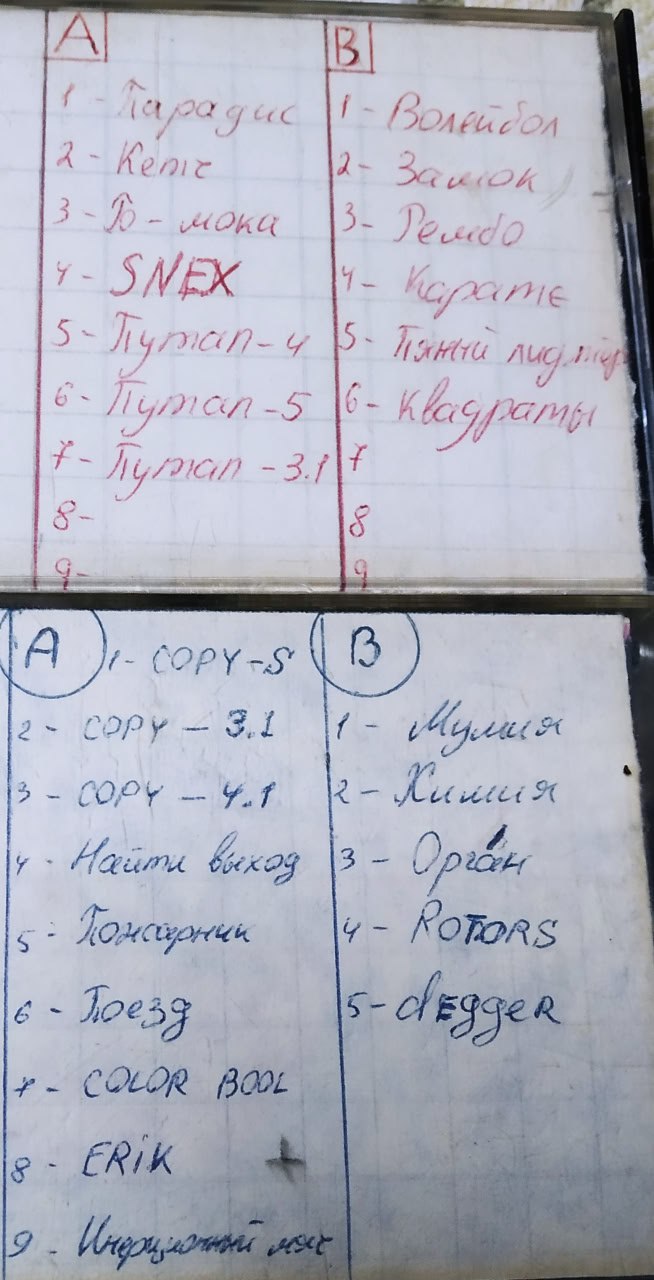 A
1 - Парадис
2 - Кетч
3 - Б - мока
4 - SNEX
5 - Путап - 4
6 - Путап - 5
7 - Путап - 3.1
8 -
9 -
B
1 - Волейбол
2 - Замок
3 - Рембо
4 - Каратє
5 - Пяний
6 - Квадраты
7
8
9
A
1 - COPY - S
2 - COPY - 3.1
3 - COPY - 4.1
4 - Найти выход
5 - Пожарник
6 - Поезд
7 - COLOR BOOL
8 - ERiK +
9 - Инерционный мяч
B
1 - Мумия
2 - Химия
3 - Орган
4 - ROTORS
5 - dEggER